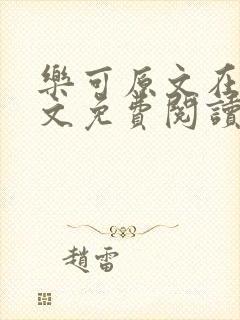 樂可原文在
文免費閱讀
趙雷